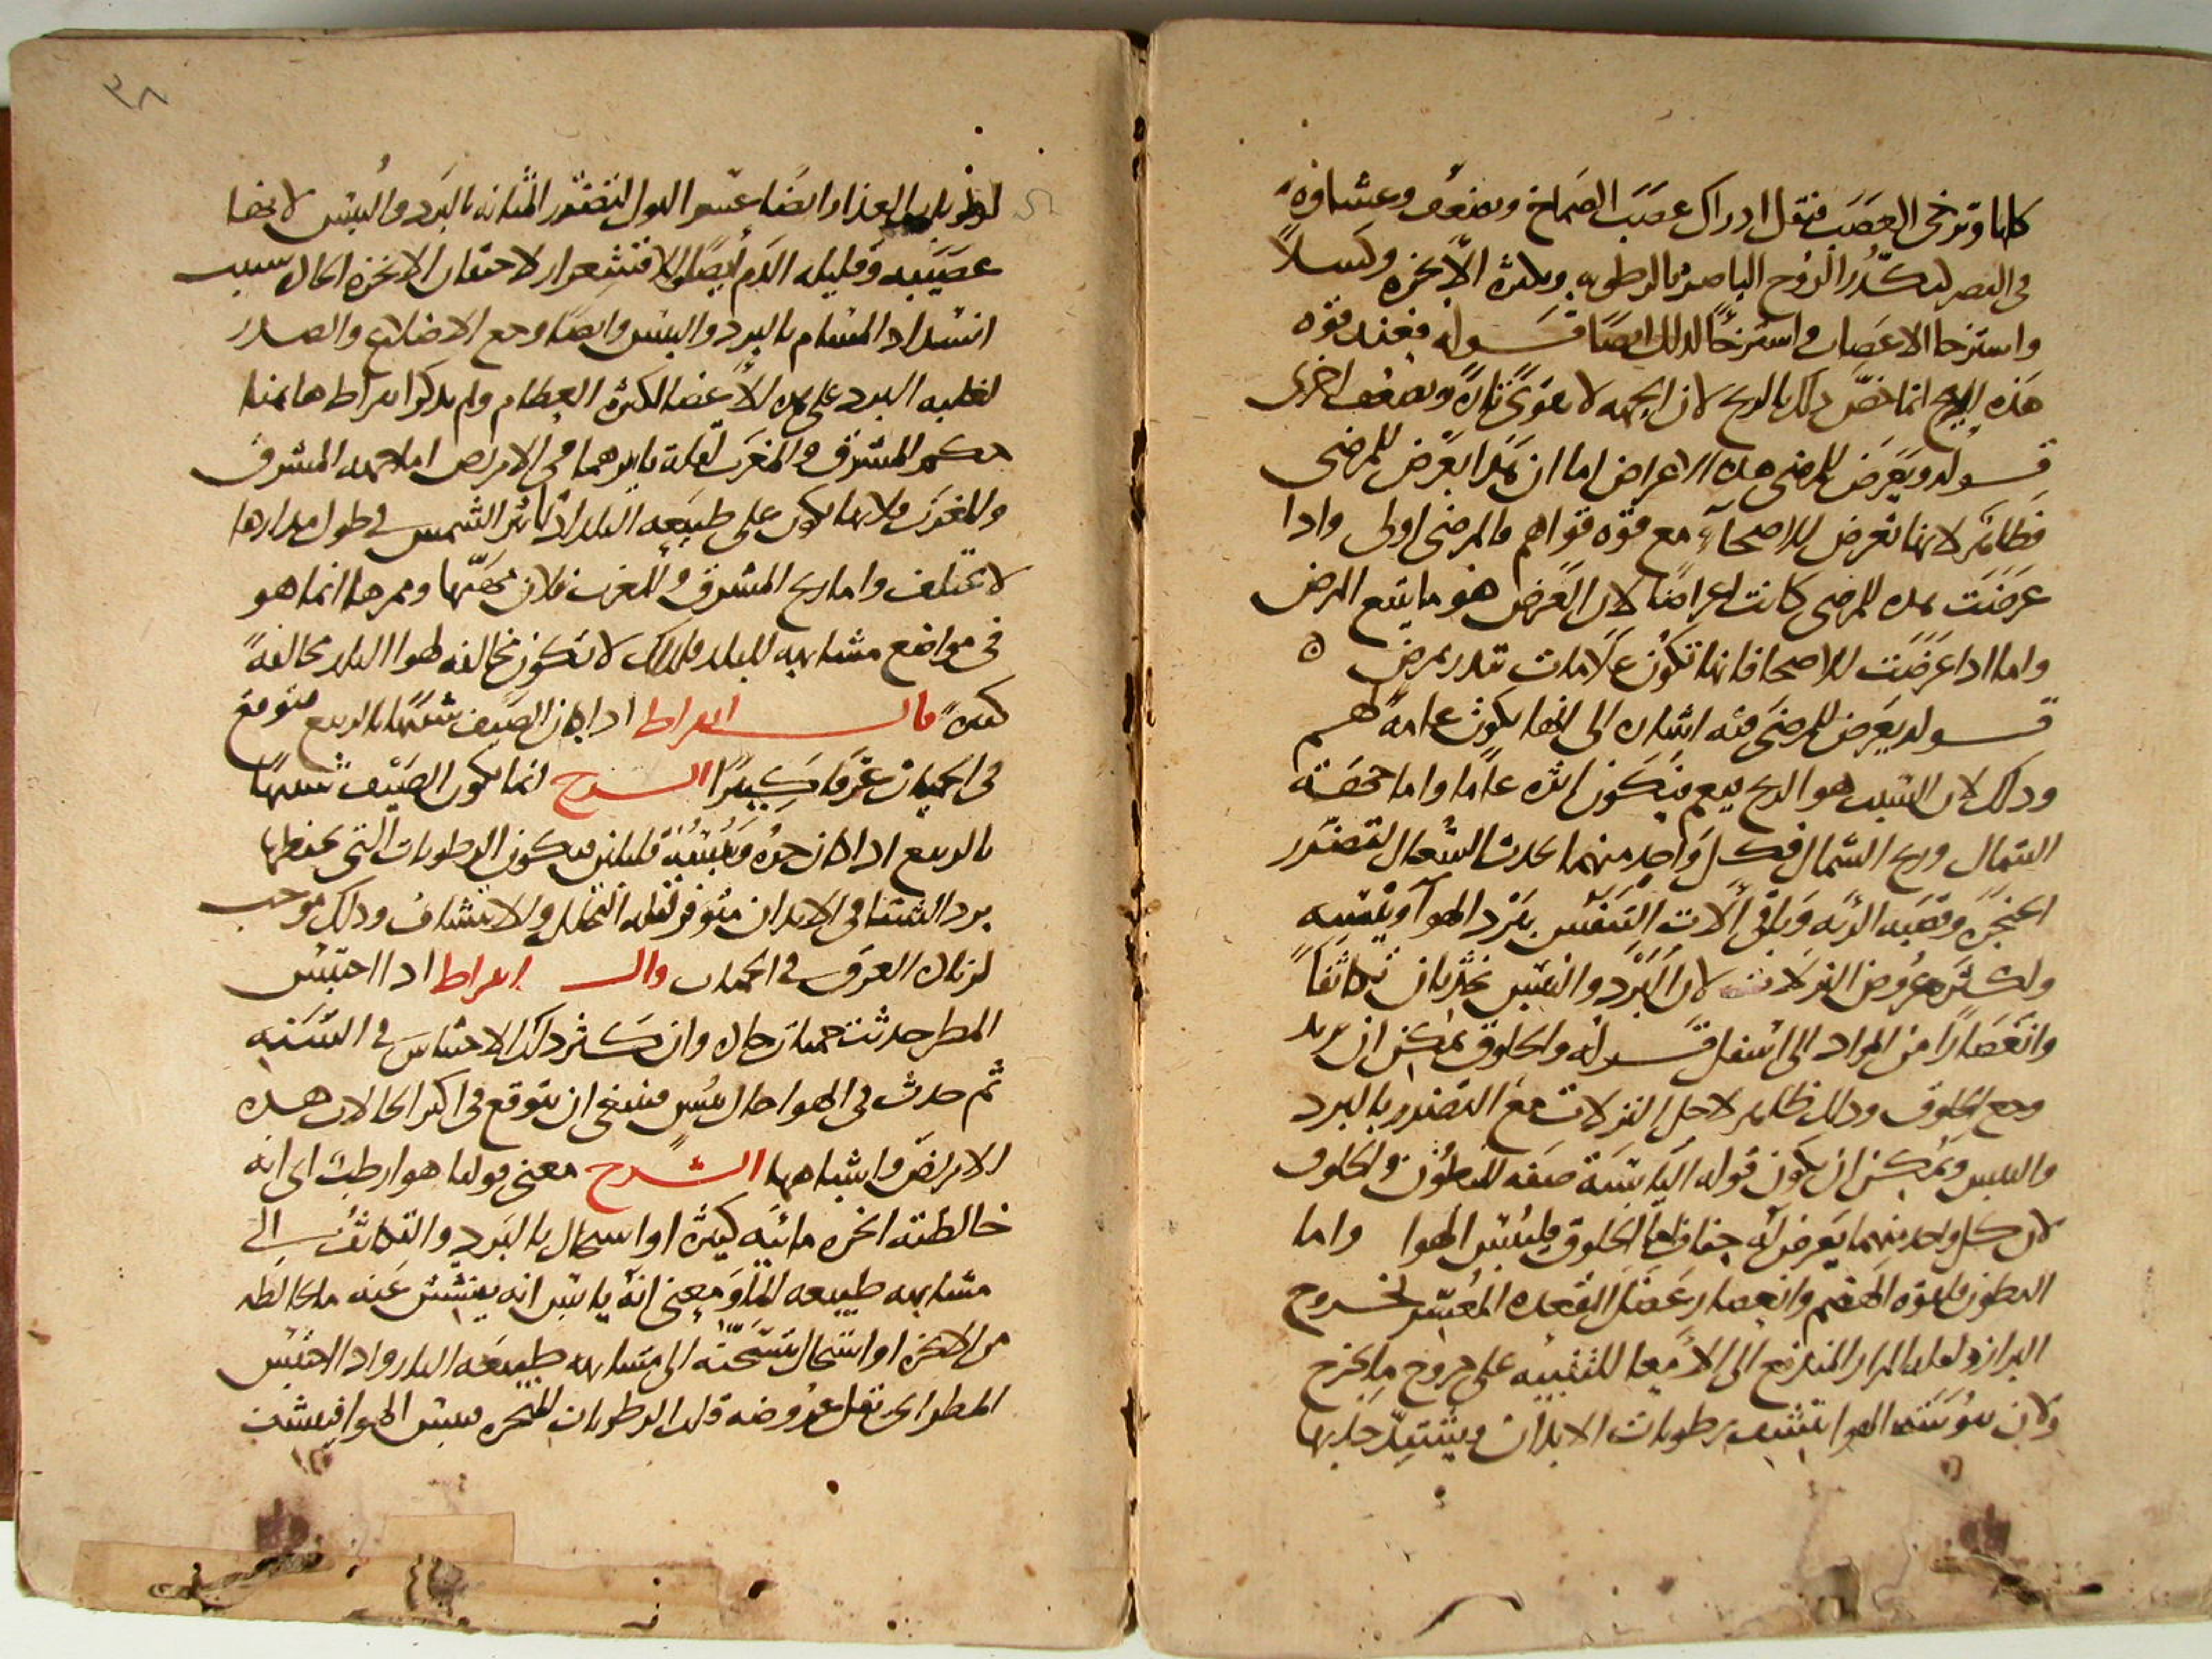 كلها وترخى العصب فيقل ادراك عصب الصماخ ويضعف وغشاوة
فى البصر لتكدر الروح الباصر بالرطوبه وبكثرة الابخره وكسلا
واسترخا الاعصاب واسترخا لذلك ايضا قوله فعند قوه
هذه الريح انما خص ذلك بالريح لان الجهه لا تقوى تارة وتضعف اخرى
قوله ويعرض للمرضى هذه الاعراض اما ان هذا يعرض للمرضى
فظاهر لانها تعرض للاصحاء مع قوه قواهم فالمرضى اولى واذا
عرضت هذه للمرضى كانت اعراضا لان العرض هو ما يتبع المرض
واما اذا عرضت للاصحا فانها تكون علامات تنذر بمرض ه
قوله يعرض للمرضى فيه اشاره الى انها يكون عامة لهم
وذلك لان السبب هو الريح فيعم فيكون اثره عاما واما
الشمال وريح الشمال فكل واحد منهما يحدث السعال لتضرر
الحنجرة وقصبه الرئه وباقى الات التنفس ببرد الهوا ويبسه
ولكثرة عروض النزلات لان البرد واليبس يحدثان تكاثفا
وانعصارا من المواد الى اسفل قوله والحلوق يمكن ان يريد
وجع الحلوق وذلك ظاهر لاجل النزلات مع التضرر بالبرد
واليبس ويمكن ان يكون قوله اليابسة صفه للبطون والحلوق
لان كل واحد منهما يعرض له جفاف اما الحلوق فليبس الهوا واما
البطون فلقوة الهضم وانعصار عضل المقعدة المعسر لخروج
البراز ولقله المرار المندفع الى الامعا للتنبيه على خروج ما يخرج
ولان يبوسة الهوا تنشف رطوبات الابدان ويشتد جذبها
٣٨
لرطوبات الغذا وايضا عسر البول لتضرر المثانه بالبرد واليبس لانها
عصبيه وقليله الدم وايضا الاقشعرار لاحتقان الابخرة الحاده بسبب
انسداد المسام بالبرد واليبس وايضا وجع الاضلاع والصدر
لغلبه البرد على هذه الاعضا لكثرة العظام ولم يذكر ابقراط هاهنا
حكم المشرق والمغرب لقلة تاثيرهما فى الامراض اما جهه المشرق
والمغرب فلانهما يكون على طبيعه البلد اذ تاثير الشمس فى طول مدارها
لا يختلف واما ريح المشرق والمغرب فلان مهبها وممرها انما هو
فى مواضع مشابهه للبلد فلذلك لا تكون مخالفه لهوا البلد مخالفة
كثيرة قال ابقراط اذا كان الصيف شبيها بالربيع فتوقع
فى الحميات عرقا كثيرا الشرح انما يكون الصيف شبيها
بالربيع اذا كان حره ويبسه قليلين فيكون الرطوبات التى يحفظها
برد الشتا فى الابدان متوفرة لقله التحلل والانتشاف وذلك موجب
لزياده العرق فى الحميات قال ابقراط اذا احتبس
المطر حدثت حميات حاده وان كثر ذلك الاحتباس فى السنه
ثم حدث فى الهوا حال يبس فينبغى ان يتوقع فى اكثر الحالات هذه
الامراض واشباهها الشرح معنى قولنا هوا رطب اى انه
خالطته ابخره مائيه كثيرة او استحال بالبرد والتكاثف الى
مشابهه طبيعه الماء ومعنى انه يابس انه ينشش عنه ما يخالطه
من الابخره او استحال بتسخنه الى مشابهه طبيعه النار واذا احتبس
المطر اى قل عروضه قلت الرطوبات المتبخره فيبس الهوا فينشف